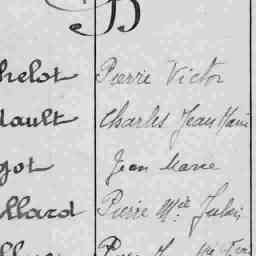 B
helot Pierre Victor
dault Charles Jean Marie
got Jean Marie
llard Pierre Mie Julien